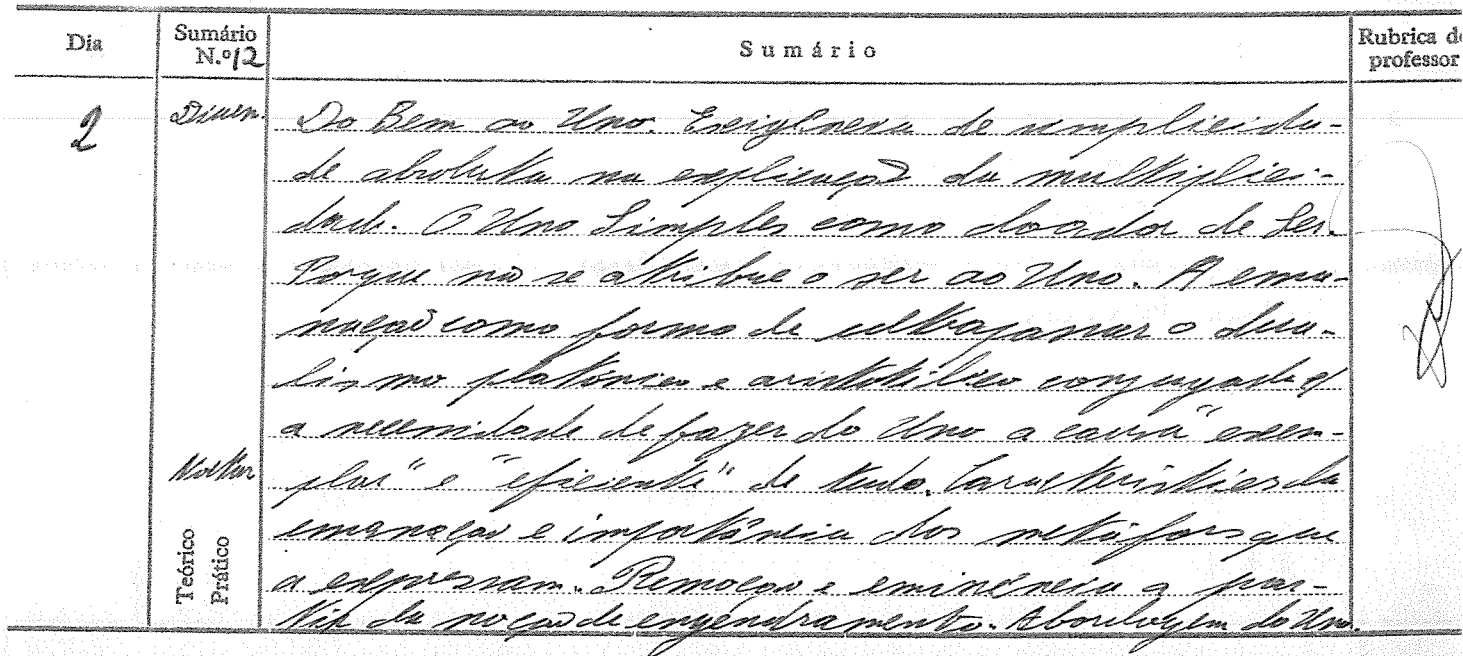 Dia
Sumário
N.º 12
Sumário
Rubrica do
professor
2
Diurn.
Do Bem ao Uno. Exigência de simplicida-
de absoluta na explicação da multiplici-
dade. O Uno Simples como doador de Ser.
Porque não se atribue o ser ao Uno. A ema-
nação como forma de ultrapassar o dua-
lismo platónico e aristotélico conjugado c/
a necessidade de fazer do Uno a causa "exem-
plar" e "eficiente" de tudo. Características da
emanação e importância das metáforas que
a expressam. Remoção e eminência a par-
tir da noção de engendramento. Abordagem do Uno.
Noctur
Teórico
Prático